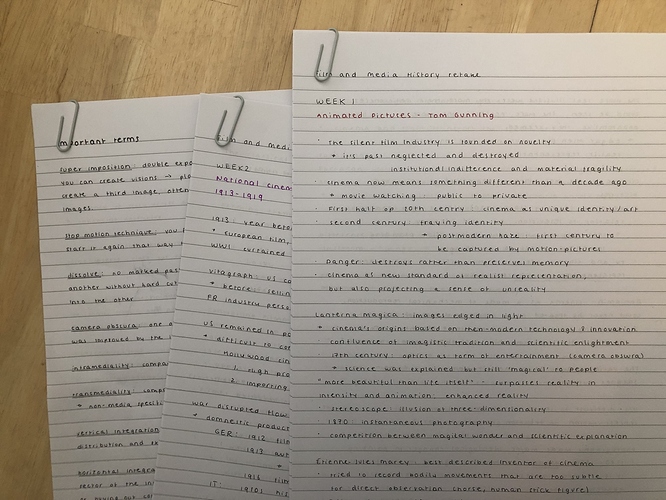 important terms
super imposition: double expo
you can create visions → pl
create a third image, often
images.
stop motion technique: you
start it again that way
dissolve: no marked pas
another without hard cut
into the other
camera obscura: one o
was improved by the
intramediality: compa
transmediality: comp
* non-media specifi
vertical integration
distribution and ex
horizontal integra
sector of the in
or buying out sel
film and medi
WEEK 2
National cinem
1913-1919
1913: year befo
* European film,
WW1 curtained
vitagraph: US co
* before: sellin
FR industry perso
US remained in po
* difficult to co
Hollywood cin
1. high pro
2. importing
war disrupted Hollyw
* domestic product
GER: 1912 film
1913 aut
*
1916 film
IT: 1910s his
film and media History retake
WEEK 1
Animated Pictures - Tom Gunning
· The silent film industry is founded on novelty
* it's past neglected and destroyed
institutional indifference and material fragility
cinema now means something different than a decade ago
* movie watching: public to private
First half of 20th centry: cinema as unique identity/art
· second century: fraying identity
* postmodern haze: first century to
be captured by motion-pictures
· Danger: destroys rather than preserves memory
· cinema as new standard of realist representation,
but also projecting a sense of unreality
Lanterna magica: images edged in light
* cinema's origins based on then-modern technology & innovation
confluence of imagistic tradition and scientific enlightment
· 17th century: optics as form of entertainment (camera obsura)
* science was explained but still 'magical' to people
"more beautiful than life itself" - surpasses reality in
intensity and animation: enhanced reality
· stereoscope: illusion of three-dimensionality
· 1870: instantaneous photography
· competition between magical wonder and scientific explanation
Etienne-Jules marey: best described inventor of cinema
· tried to record bodily movements that are too subtle
for direct observation (horse, human stick figure)